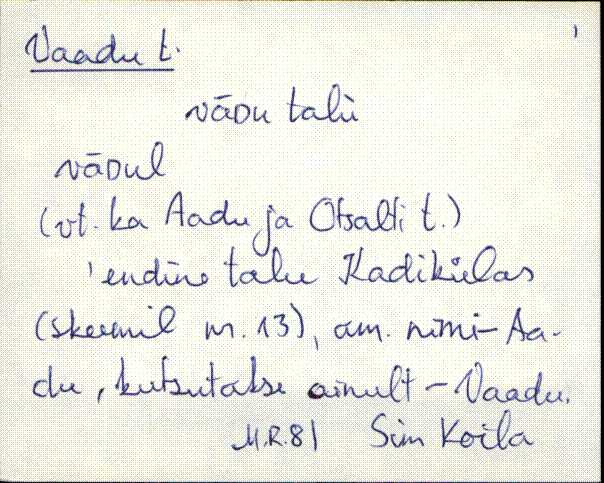 Vaadu t.
vāDu talu
vāDul
(vt. ka Aadu ja Otsalti t.)
'endine talu Kadikülas
(skeemil nr. 13), am. nimi - Aa-
du, kutsutakse ainult - Vaadu.
M.R.81 Sim Koila